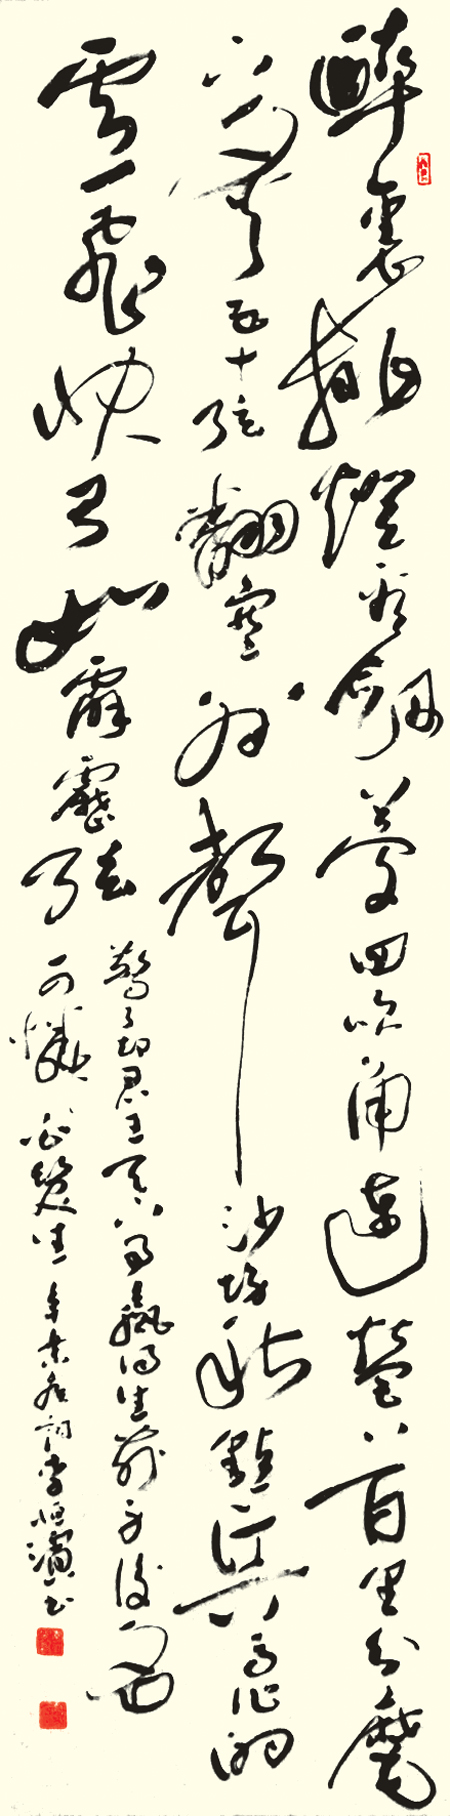 醉裏挑燈看劍夢回吹角連營八百里分麾
下炙五十弦翻塞外聲沙場秋點兵馬作的
盧飛快弓如霹靂弦
驚了却君王天下事贏得生前身後名
可憐白髮生辛棄疾詞李恒濱书